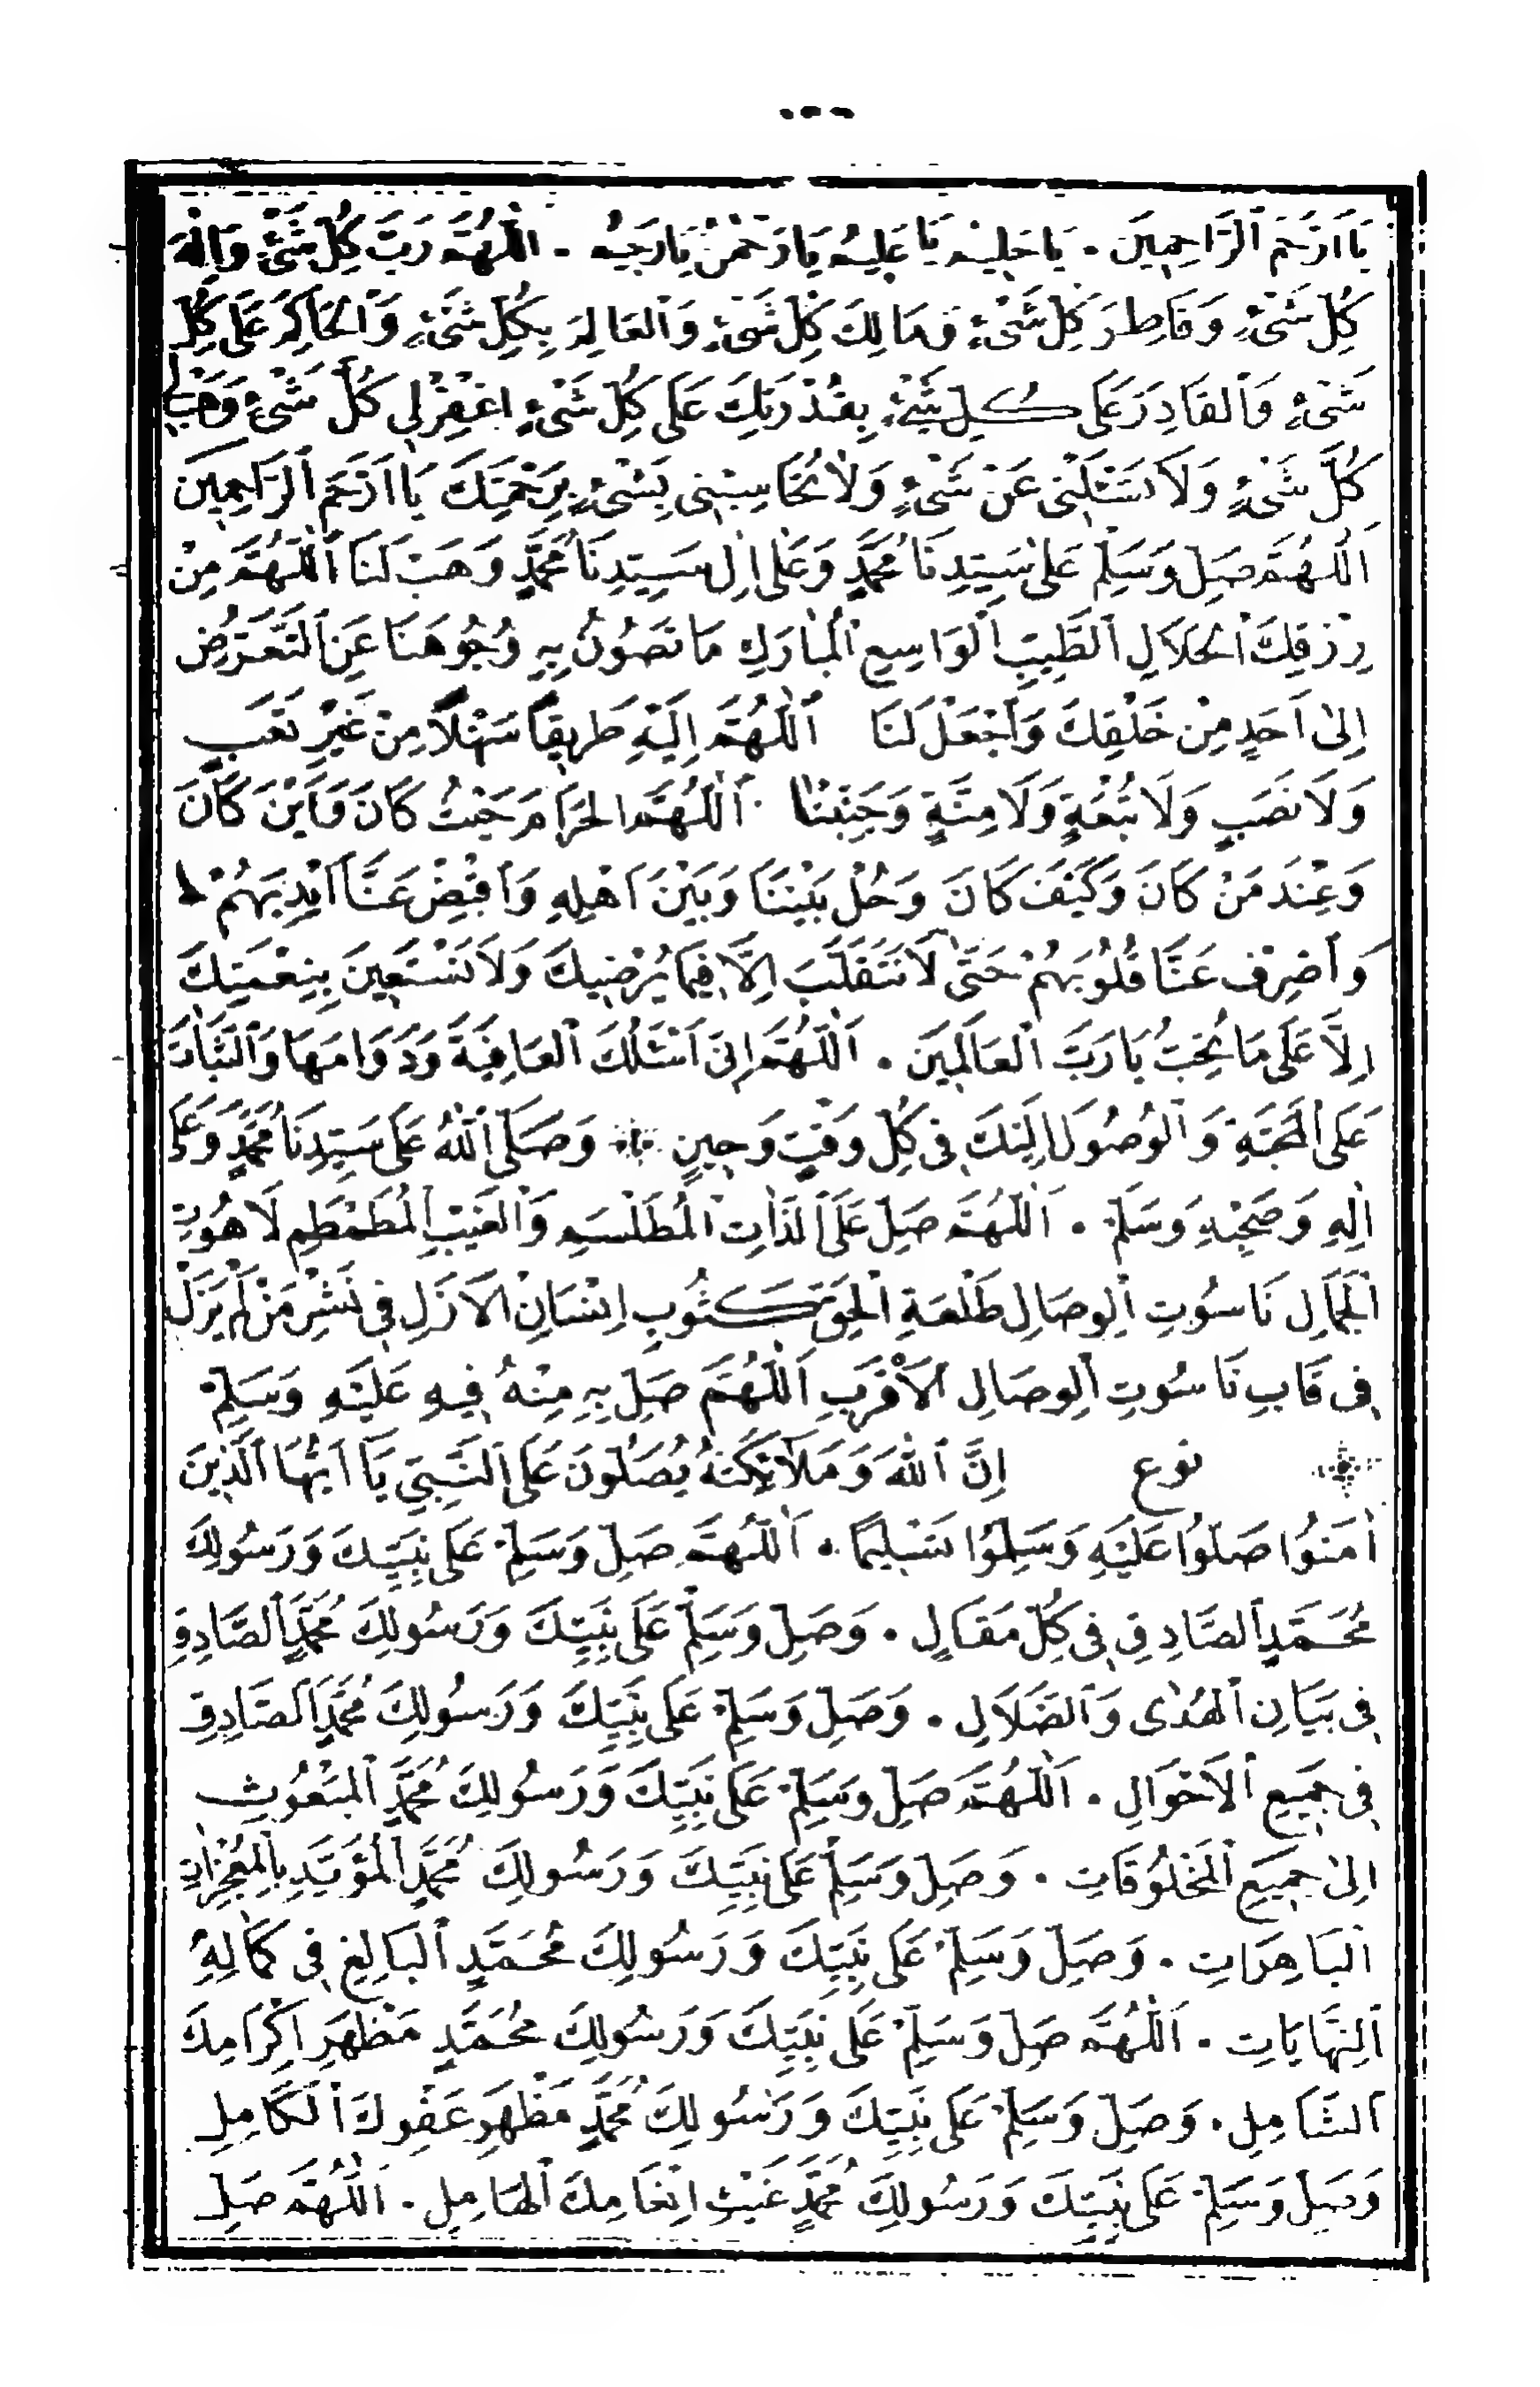 يَا اَرْحَمَ الرَّاحِمِينَ . يَا حَلِيمُ يَا عَلِيمُ يَا رَحْمٰنُ يَا رَحِيمُ . اَللّٰهُمَّ رَبَّ كُلِّ شَىْءٍ وَاِلٰهَ
كُلِّ شَىْءٍ وَفَاطِرَ كُلِّ شَىْءٍ وَمَالِكَ كُلِّ شَىْءٍ وَالْعَالِمَ بِكُلِّ شَىْءٍ وَالْحَاكِمَ عَلَى كُلِّ
شَىْءٍ وَالْقَادِرَ عَلَى كُلِّ شَىْءٍ بِقُدْرَتِكَ عَلَى كُلِّ شَىْءٍ اِغْفِرْلِي كُلَّ شَىْءٍ وَهَبْ لِي
كُلَّ شَىْءٍ وَلَا تَسْئَلْنِى عَنْ شَىْءٍ وَلَا تُحَاسِبْنِى بِشَىْءٍ بِرَحْمَتِكَ يَا اَرْحَمَ الرَّاحِمِينَ
اَللّٰهُمَّ صَلِّ وَسَلِّمْ عَلٰى سَيِّدِنَا مُحَمَّدٍ وَعَلٰى اٰلِ سَيِّدِنَا مُحَمَّدٍ وَهَبْ لَنَا اَللّٰهُمَّ مِنْ
رِزْقِكَ الْحَلَالِ الطَّيِّبِ الْوَاسِعِ الْمُبَارَكِ مَا تَصُونُ بِهِ وُجُوهَنَا عَنِ التَّعَرُّضِ
اِلٰى اَحَدٍ مِنْ خَلْقِكَ وَاجْعَلْ لَنَا اَللّٰهُمَّ اِلَيْهِ طَرِيقًا سَهْلًا مِنْ غَيْرِ تَعَبٍ
وَلَا نَصَبٍ وَلَا تَبْعَةٍ وَلَا مِنَّةٍ وَجَنِّبْنَا . اَللّٰهُمَّ الْحَرَامَ حَيْثُ كَانَ وَاَيْنَ كَانَ
وَعِنْدَ مَنْ كَانَ وَكَيْفَ كَانَ وَحُلْ بَيْنَنَا وَبَيْنَ اَهْلِهِ وَاقْبِضْ عَنَّا اَيْدِيَهُمْ
وَاصْرِفْ عَنَّا قُلُوبَهُمْ حَتّٰى لَا نَتَقَلَّبَ اِلَّا فِيمَا يُرْضِيكَ وَلَا نَسْتَعِينَ بِنِعْمَتِكَ
اِلَّا عَلَى مَا تُحِبُّ يَا رَبَّ الْعَالَمِينَ . اَللّٰهُمَّ اِنِّى اَسْئَلُكَ الْعَافِيَةَ وَدَوَامَهَا وَالثَّبَاتَ
عَلَى الْمَحَبَّةِ وَالْوُصُولَ اِلَيْكَ فِى كُلِّ وَقْتٍ وَحِينٍ وَصَلَّى اللّٰهُ عَلَى سَيِّدِنَا مُحَمَّدٍ وَعَلٰى
اٰلِهِ وَصَحْبِهِ وَسَلَّمْ . اَللّٰهُمَّ صَلِّ عَلَى الذَّاتِ الْمُطَلْسَمِ وَالْغَيْبِ الْمُطَمْطَمِ لَاهُوتِ
الْجَمَالِ نَاسُوتِ الْوِصَالِ طَلْعَةِ الْحَقِّ كَثُوبِ اِنْسَانِ الْاَزَلِ فِى نَشْرِ مَنْ لَمْ يَزَلْ
فِى قَابِ نَاسُوتِ الْوِصَالِ الْاَقْرَبِ اَللّٰهُمَّ صَلِّ بِهِ مِنْهُ فِيهِ عَلَيْهِ وَسَلِّمْ
نوع اِنَّ اللّٰهَ وَمَلٰائِكَتَهُ يُصَلُّونَ عَلَى النَّبِيِّ يَا اَيُّهَا الَّذِينَ
اٰمَنُوا صَلُّوا عَلَيْهِ وَسَلِّمُوا تَسْلِيمًا . اَللّٰهُمَّ صَلِّ وَسَلِّمْ عَلَى نَبِيِّكَ وَرَسُولِكَ
مُحَمَّدٍ الصَّادِقِ فِى كُلِّ مَقَالٍ . وَصَلِّ وَسَلِّمْ عَلَى نَبِيِّكَ وَرَسُولِكَ مُحَمَّدٍ الصَّادِقِ
فِى بَيَانِ الْهُدٰى وَالضَّلَالِ . وَصَلِّ وَسَلِّمْ عَلَى نَبِيِّكَ وَرَسُولِكَ مُحَمَّدٍ الصَّادِقِ
فِى جَمِيعِ الْاَحْوَالِ . اَللّٰهُمَّ صَلِّ وَسَلِّمْ عَلَى نَبِيِّكَ وَرَسُولِكَ مُحَمَّدٍ الْمَبْعُوثِ
اِلٰى جَمِيعِ الْمَخْلُوقَاتِ . وَصَلِّ وَسَلِّمْ عَلَى نَبِيِّكَ وَرَسُولِكَ مُحَمَّدٍ الْمُؤَيَّدِ بِالْمُعْجِزَاتِ
الْبَاهِرَاتِ . وَصَلِّ وَسَلِّمْ عَلَى نَبِيِّكَ وَرَسُولِكَ مُحَمَّدٍ الْبَالِغِ فِى كَمَالِهِ
النِّهَايَاتِ . اَللّٰهُمَّ صَلِّ وَسَلِّمْ عَلَى نَبِيِّكَ وَرَسُولِكَ مُحَمَّدٍ مَظْهَرِ اِكْرَامِكَ
الشَّامِلِ . وَصَلِّ وَسَلِّمْ عَلَى نَبِيِّكَ وَرَسُولِكَ مُحَمَّدٍ مَظْهَرِ عَفْوِكَ الْكَامِلِ
وَصَلِّ وَسَلِّمْ عَلَى نَبِيِّكَ وَرَسُولِكَ مُحَمَّدٍ غَيْثِ اِنْعَامِكَ الْهَامِلِ . اَللّٰهُمَّ صَلِّ